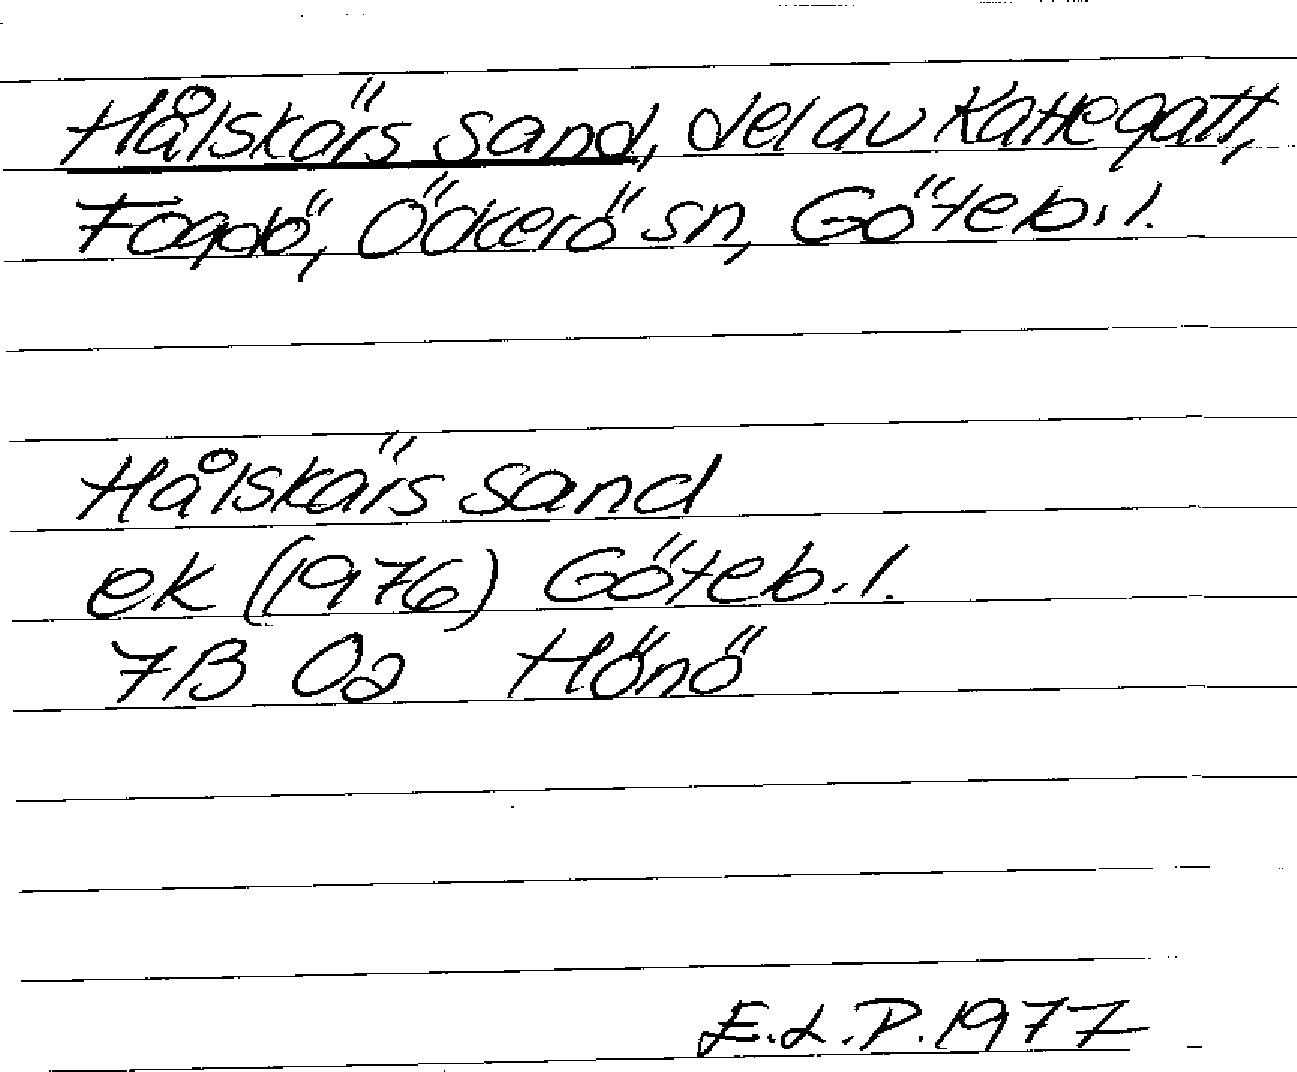 Hålskärs sand, del av Kattegatt,
Fogdö, Öckerö sn, Göteb.l.
Hålskärs sand
ek (1976) Göteb.l.
7B 0a Hönö
E.L.P. 1977